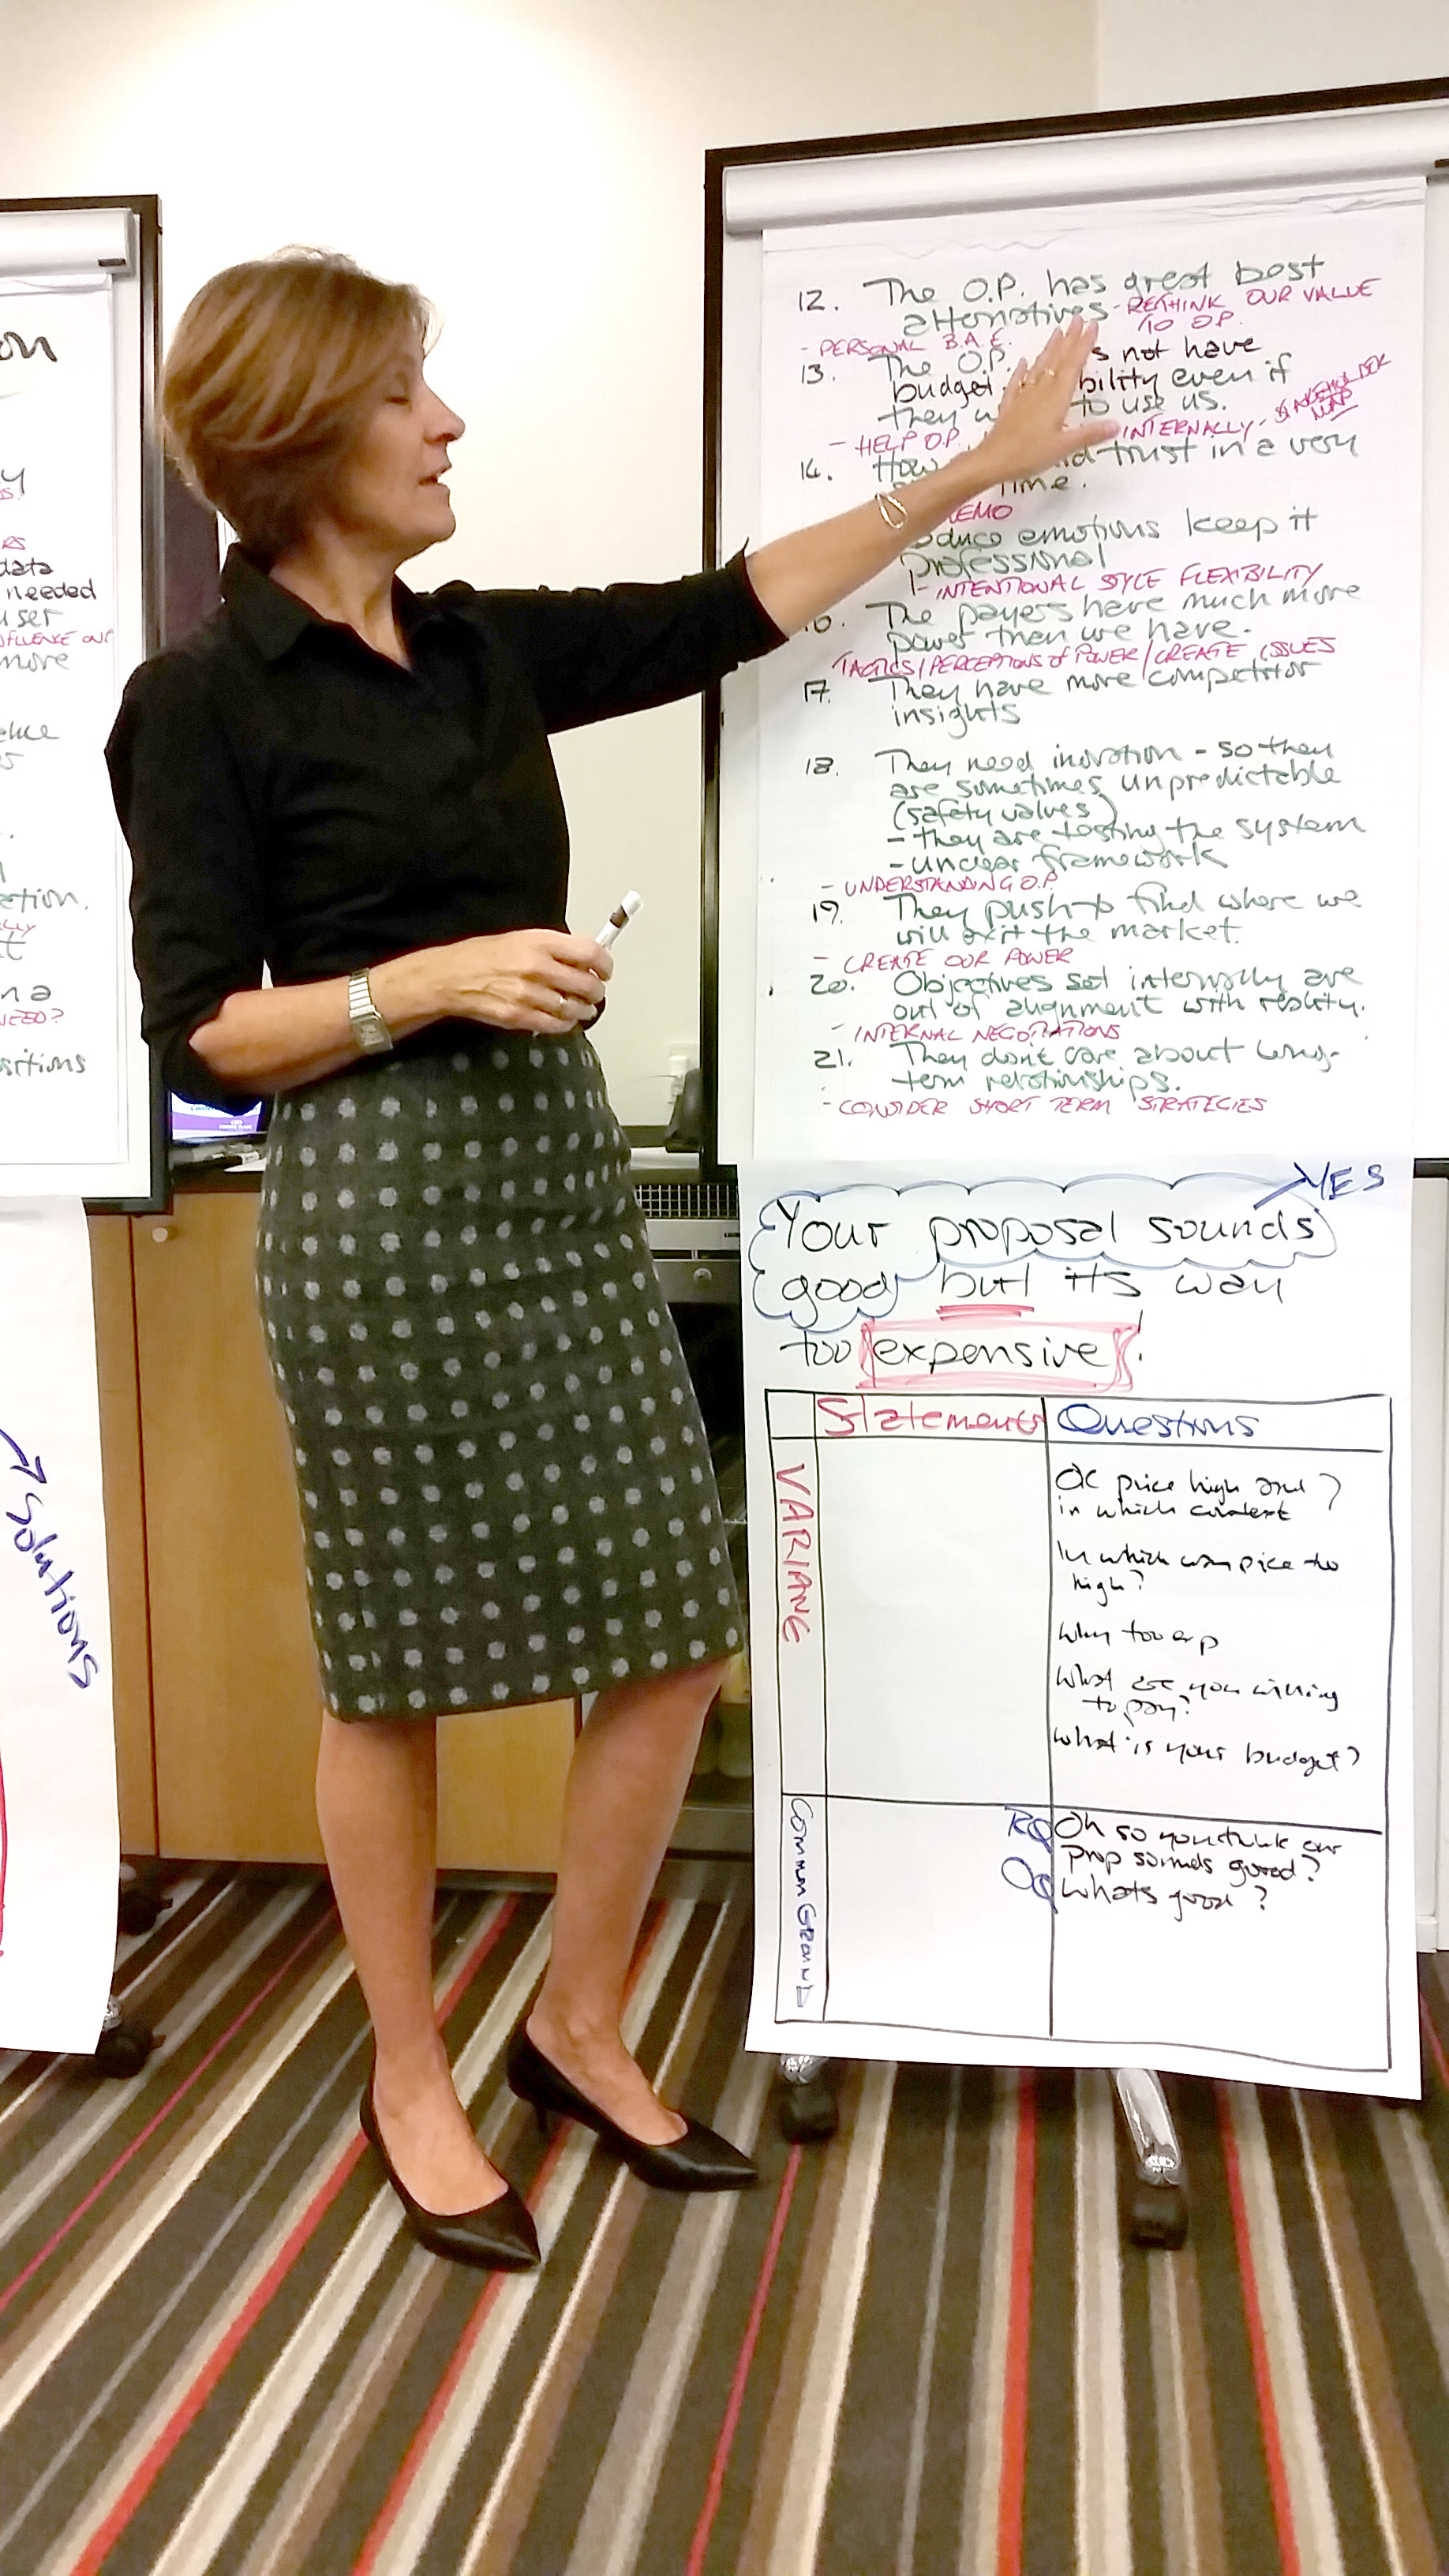 on
y
data
needed
user
more
etion.
t
in a
NEED?
sitions
Solutions
12. The O.P. has great best
alternatives - RETHINK OUR VALUE
TO O.P.
- PERSONAL B.A.E.
13. The O.P. s not have
budget bility even if
they to use us.
- HELP O.P. INTERNALLY - STAKEHOLDER
MAP
14. How trust in a very
time.
emotions keep it
professional
- INTENTIONAL STYLE FLEXIBILITY
The payers have much more
power then we have.
TACTICS/PERCEPTIONS of POWER/CREATE ISSUES
17. They have more competitor
insights
18. They need inovation - so they
are sometimes unpredictable
(safety valves)
- they are testing the system
- unclear framework
- UNDERSTANDING O.P.
19. They push to find where we
will exit the market.
- CREATE OUR POWER
20. Objectives set internally are
out of alignment with reality.
- INTERNAL NEGOTIATIONS
21. They don't care about long-
term relationships.
- CONSIDER SHORT TERM STRATEGIES
YES
Your proposal sounds
good but its way
too expensive!
Statements Questions
VARIANCE
OK price high and ?
in which context
In which way price too
high?
Why too exp
What are you willing
to pay?
What is your budget?
COMMON GROUND
RQ Oh so you think our
prop sounds good?
OQ Whats good?